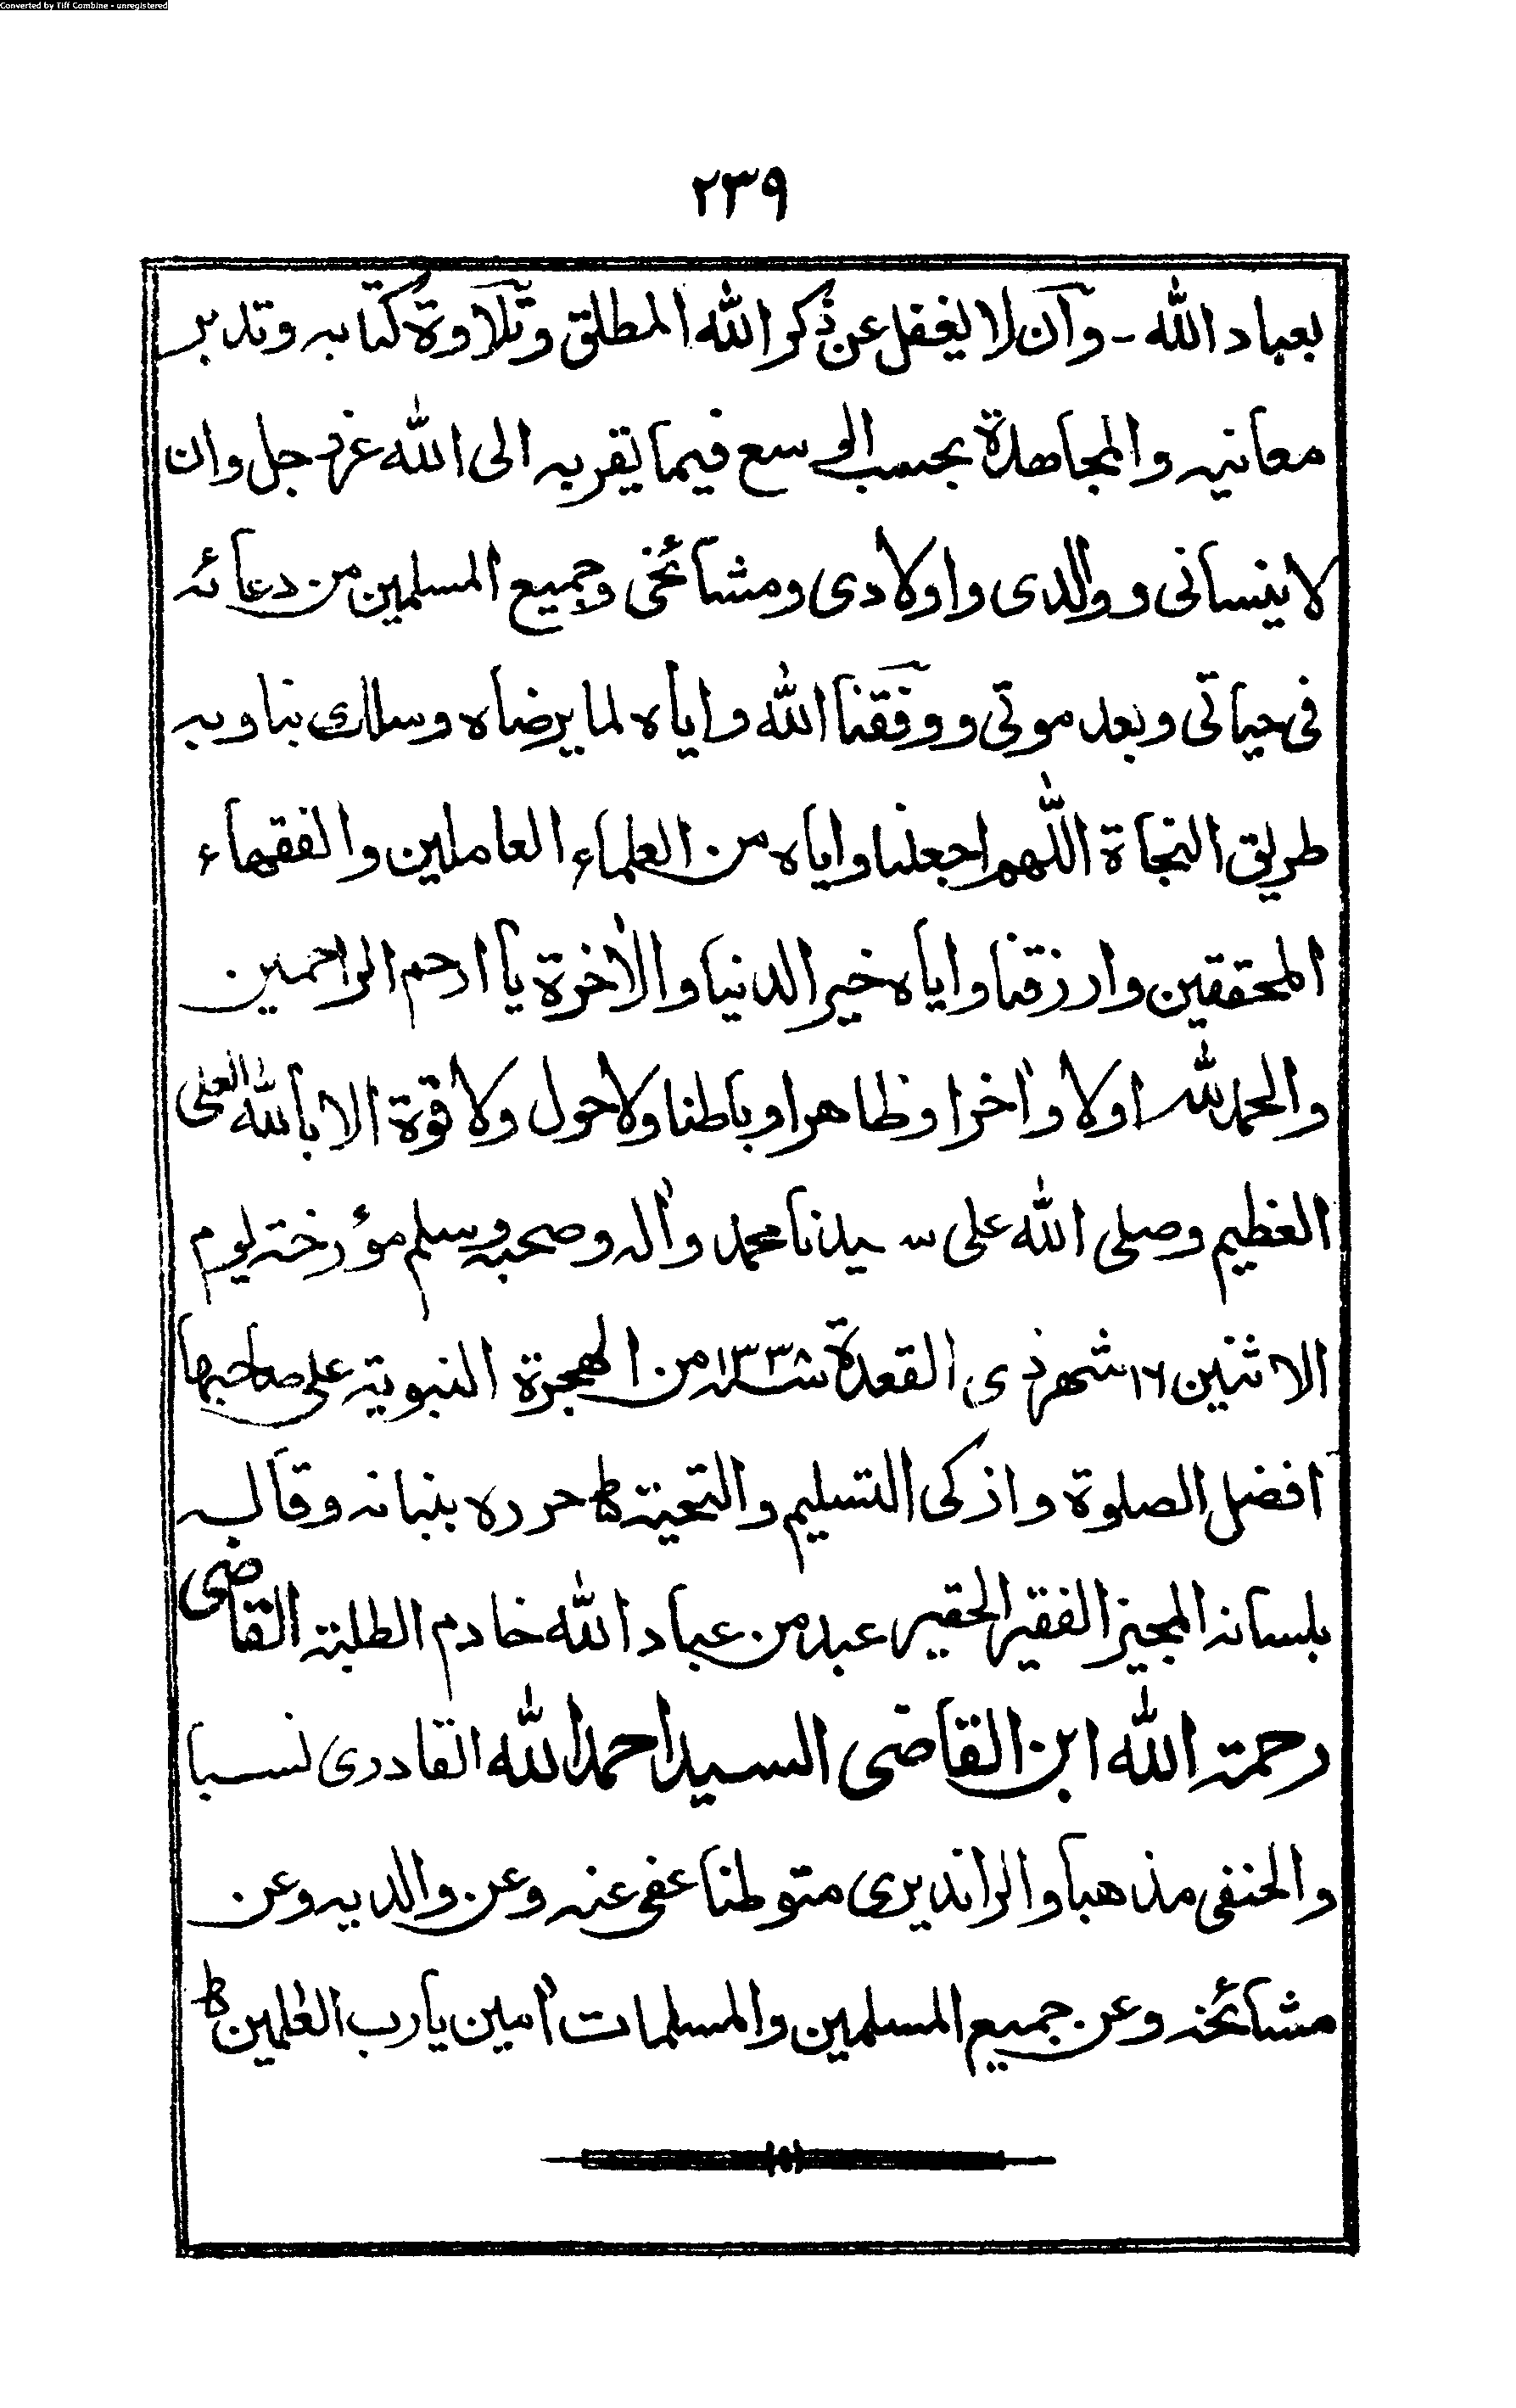 Converted by Tiff Combine - unregistered
٢٣٩
بعباد الله - وأن لا يغفل عن ذكر الله المطلق وتلاوة كتابه وتدبر
معانيه والمجاهدة بحسب الوسع فيما يقربه الى الله عز وجل وان
لا ينسانى ووالدى واولادى ومشائخى وجميع المسلمين من دعائه
فى حياتى وبعد موتى ووفقنا الله واياه لما يرضاه وسلك بنا وبه
طريق النجاة اللهم اجعلنا واياه من العلماء العاملين والفقهاء
المحققين وارزقنا واياه خير الدنيا والاٰخرة يا ارحم الراحمين
والحمد لله اولا واٰخرا وظاهرا وباطنا ولا حول ولا قوة الا بالله العلى
العظيم وصلى الله على سيدنا محمد واٰله وصحبه وسلم مؤرخته يوم
الاثنين ١٦ شهر ذى القعدة سنه ١٣٣٨ من الهجرة النبوية على صاحبها
افضل الصلوة وازكى التسليم والتحية ط حرره ببنانه وقاله
بلسانه المجيز الفقير الحقير عبد من عباد الله خادم الطلبة القاضى
رحمة الله ابن القاضى السيد احمد الله القادرى نسبا
والحنفى مذهبا والراندیرى متوطنا عفى عنه وعن والديه وعن
مشائخه وعن جميع المسلمين والمسلمات اٰمين يا رب العٰلمين ط